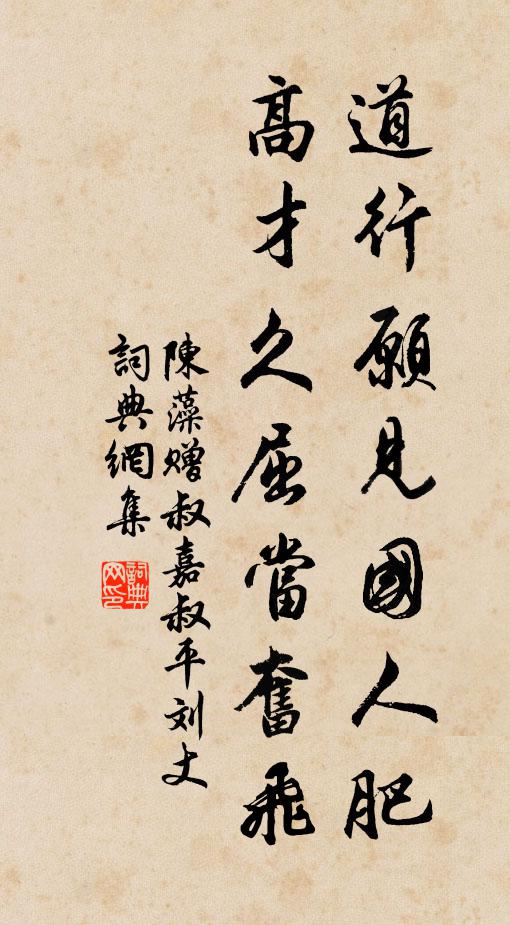 道行願見國人肥
高才久屈當奮飛
陳藻贈叔嘉叔平刘丈
詞典網集
詞典网印